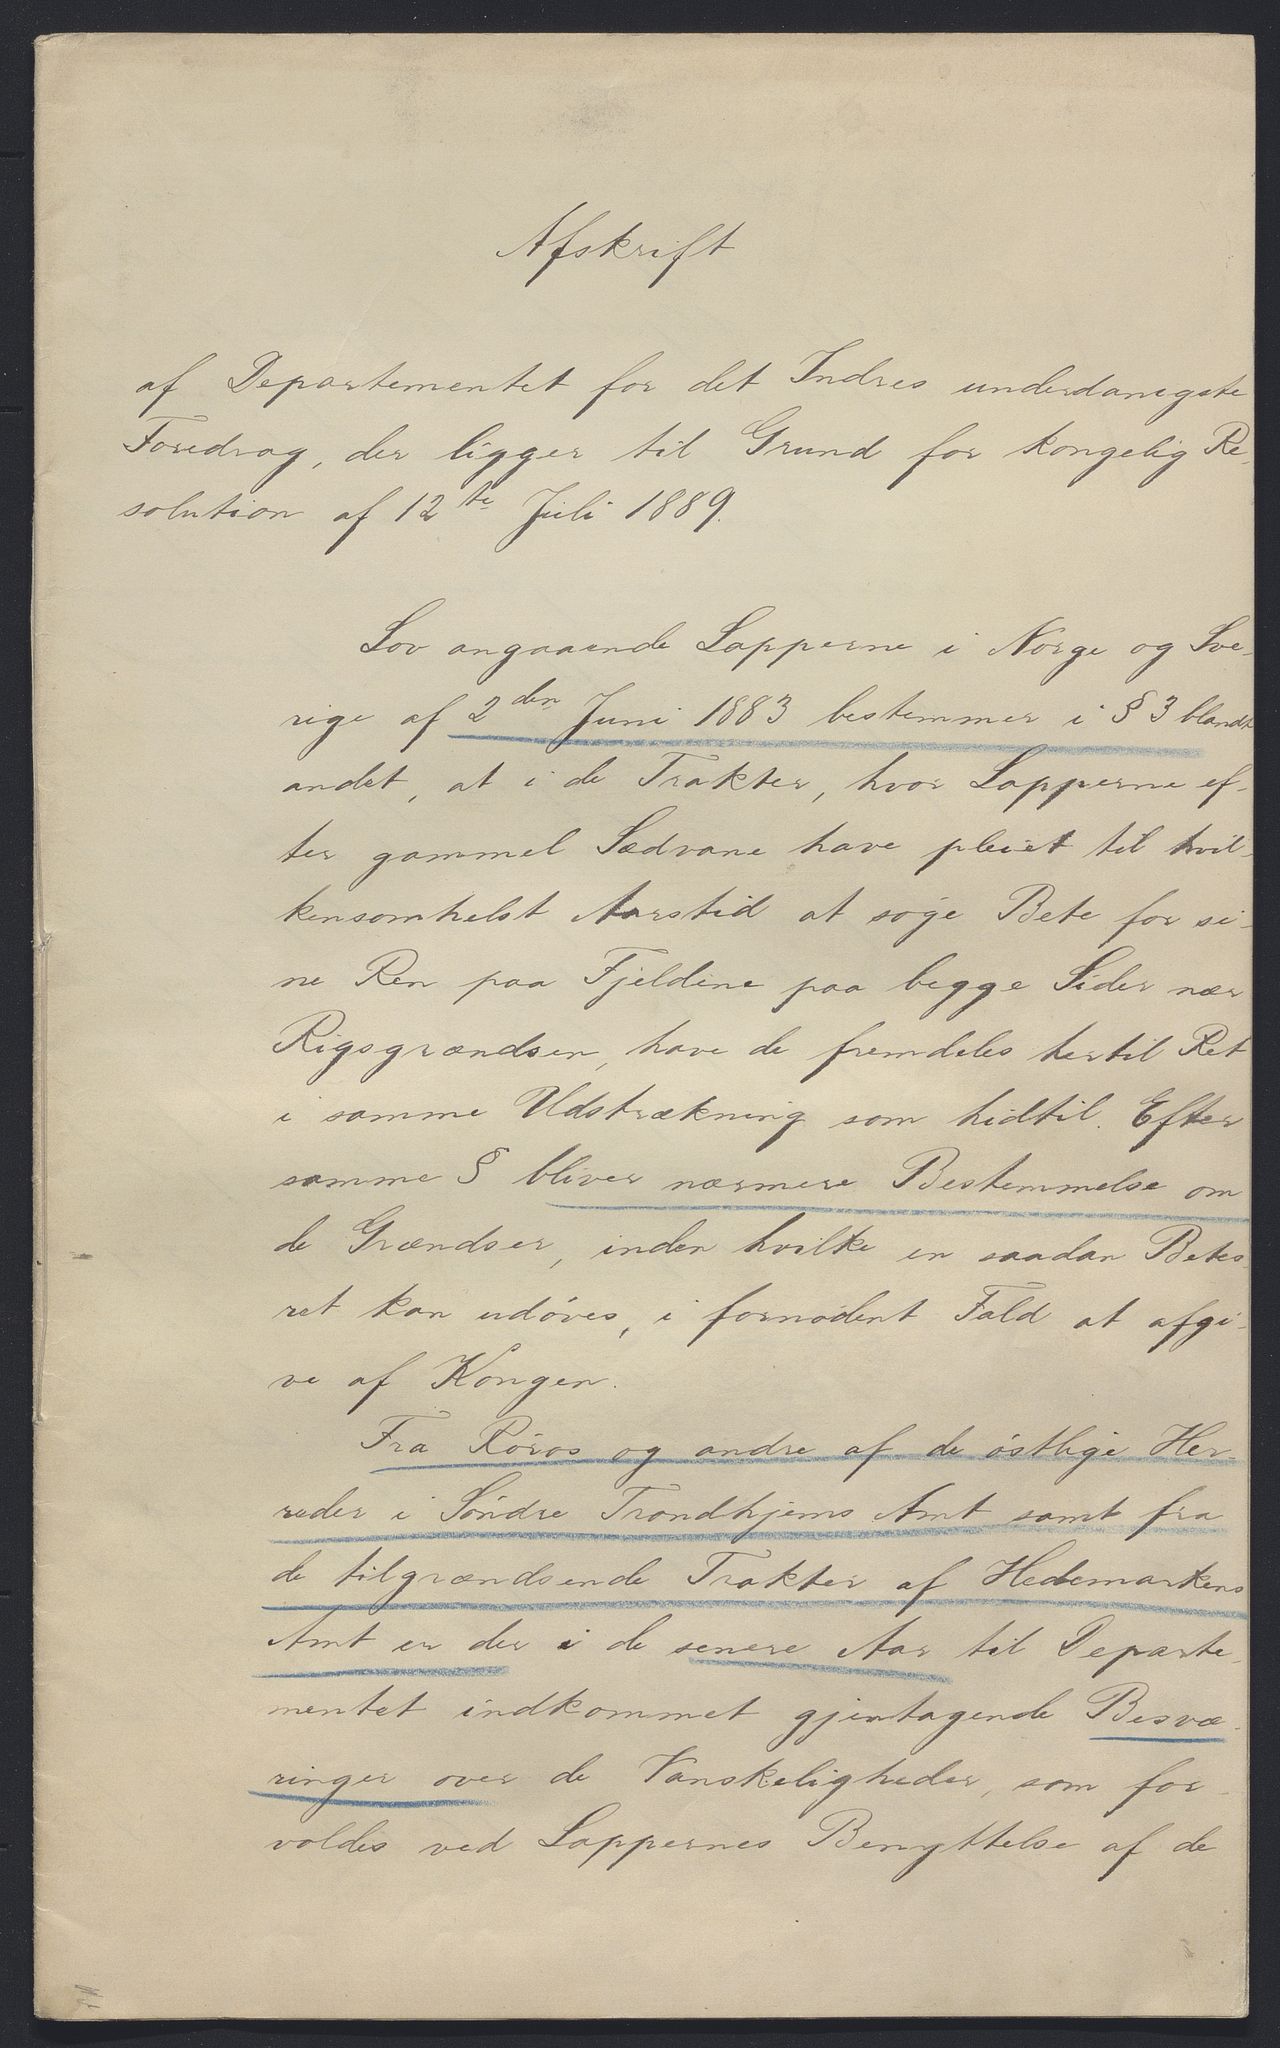 Afskrift
af Departementet for det Indres underdanigste
Foredrag, der ligger til Grund for kongelig Re-
solution af 12te Juli 1889.
Lov angaaende Lapperne i Norge og Sve-
rige af 2den Juni 1883 bestemmer i § 3 blandt
andet, at i de Trakter, hvor Lapperne ef-
ter gammel Sædvane have pleiet til hvil-
kensomhelst Aarstid at søge Bete for si-
ne Ren paa Fjeldene paa begge Sider nær
Rigsgrændsen, have de fremdeles hertil Ret
i samme Udstrækning som hidtil. Efter
samme § bliver nærmere Bestemmelse om
de Grændser, inden hvilke en saadan Betes-
ret kan udøves, i fornødent Fald at afgi-
ve af Kongen.
Fra Røros og andre af de østlige Her-
reder i Søndre Trondhjems Amt samt fra
de tilgrændsende Trakter af Hedemarkens
Amt er der i de senere Aar til Departe-
mentet indkommet gjentagende Besvæ-
ringer over de Vanskeligheder, som for-
voldes ved Lappernes Benyttelse af de